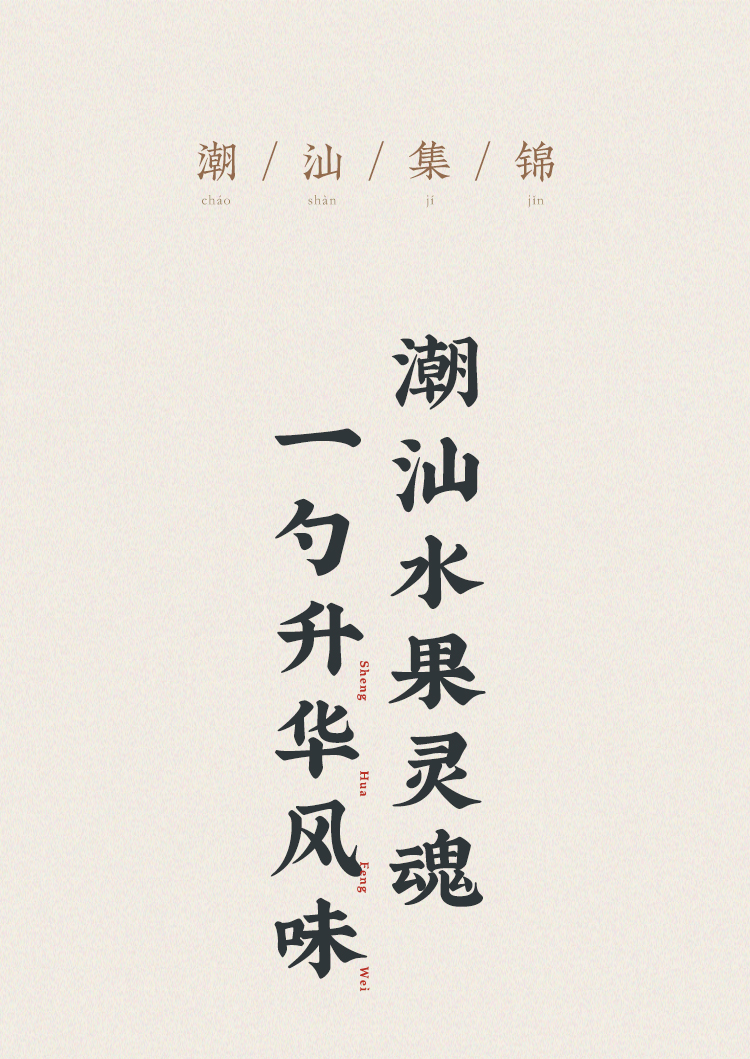 潮/汕/集/锦
cháo shàn jí jǐn
潮汕水果灵魂
一勺升华风味
Sheng Hua Feng Wei